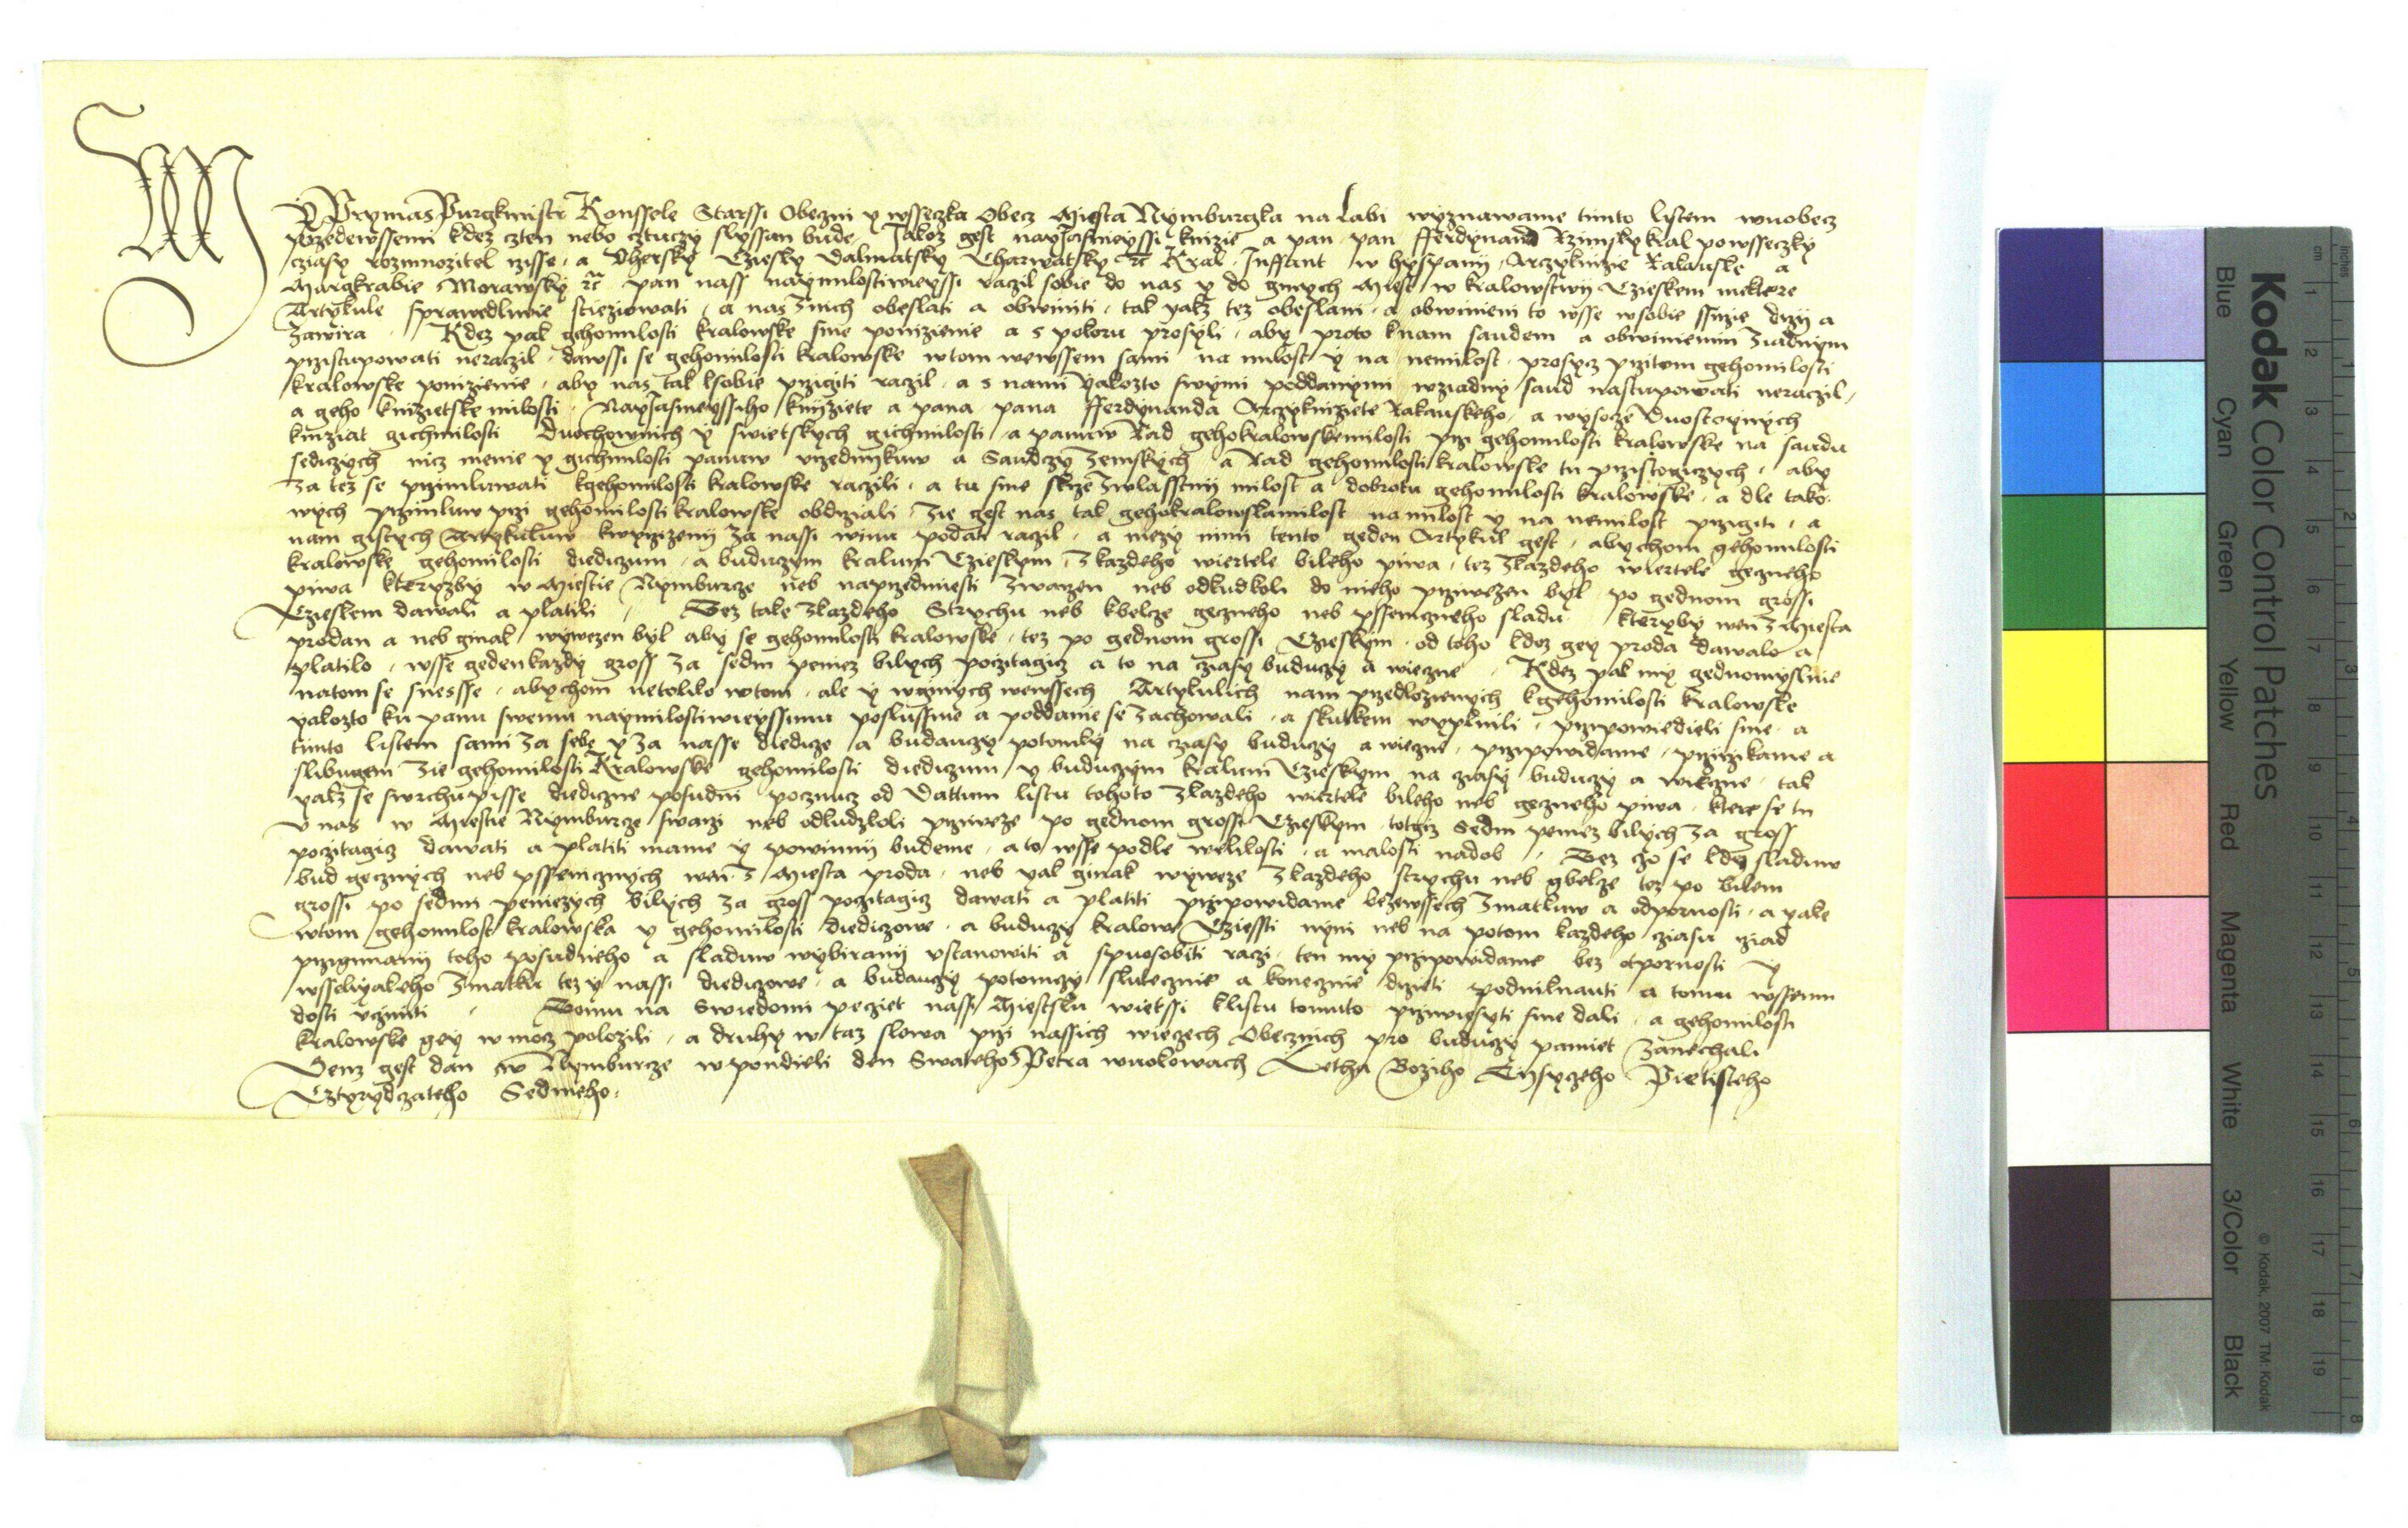 MY Prymas Purgkmistr Konssele Starssi Obeczni y wsseczka Obecz Miesta Nymburgka na Labi wyznawame timto listem wuobecz
przedewssemi kdez czten nebo cztuczy slyssan bude Jakoz gest nayjasnieyssi knize a pan pan Fferdynand Rzimsky kral powsseczky
cziasy rozmnozitel rzisse a Vhersky Cziesky Dalmatsky Charwatsky etc Kral Inffant w hyspanij Arczyknize Rakauske a
Margkrabie Morawsky etc pan nass naymilostiwieyssi raczil sobie do nas y do ginych Miest w kralowstwij Czieskem niektere
Artykule sprawedliwie stieziowati a nas znich obeslati a obwiniti tak yakz tez obeslani a obwinieni to wsse wsobie ssirzie drzij a
zawira Kdez pak gehomilosti kralowske sme ponizienie a s pokoru prosyli aby proto knam saudem a obwinienim ziadnym
przistupowati neraczil dawssi se gehomilosti kralowske wtom wewssem sami na milost y na nemilost prosycz przitom gehomilosti
kralowske ponizienie aby nas tak ksobie przigiti raczil a s nami yakozto swymi poddanymi wziadny saud nastupowati neraczil
a geho knizietske milosti Nayjasneyssiho knijziete a pana pana Fferdynanda Arczykniziete Rakauskeho a wysocze Duostoynych
kniziat gichmilosti Duochownich y swietskych gichmilosti a panuw Rad gehokralowskemilosti przi gehomilosti kralowske na saudu
sediczych nicz menie y gichmilosti panuw vrzednykuw a Saudczy Zemskych a Rad gehomilosti kralowske tu przistogiczych aby
za tez se przimluwati kgehomilosti kralowske raczili a tu sme skrze zwlasstnij milost a dobrotu gehomilosti kralowske a dle tako
wych przimluw przi gehomilosti kralowske obdrziali Zie gest nas tak gehokralowskamilost na milost y na nemilost przigiti a
nam gistych Artykuluw kwyrzizenij za nassi winu podati raczil a mezy nimi tento geden Artykul gest abychom gehomilosti
kralowske gehomilosti diediczum a buduczym kralum Czieskym z kazdeho wiertele bileho piwa tez zkazdeho wiertele geczneho
piwa kteryzby w Miestie Nymburcze neb naprzedmiesti zwarzen neb odkudkoli do nieho prziwezen byl po gednom grossi
Czieskem dawali a platili Tez take zkazdeho Strychu neb kbelcze geczneho neb pssenicznego sladu kteryby wen z Miesta
prodan a neb ginak wywezen byl aby se gehomilosti kralowske tez po gednom grossi Czieskym od toho kdoz gey proda dawalo a
platilo wsse gedenkazdy gross za sedm peniez bilych pocziitagicz a to na cziasy buduczy a wieczne Kdez pak my gednomyslnie
natom se snessse abychom netoliko wtom ale y wginych wewssech Artykulich nam przedlozienych kgehomilosti kralowske
yakozto ku panu swemu naymilostiwieyssimu poslussnie a poddanie se zachowali a skutkem wyplnili przipowiedieli sme a
timto listem sami za sebe y za nasse diedicze a budauczy potomky na cziasy buduczy a wieczne przipowidame przirzikame a
slibugem Zie gehomilosti Kralowske gehomilosti diediczum y buduczym kralum Czieskym na cziasy buduczy a wieczne tak
yakz se swrchupisse diediczne posudni pocznucz od Dattum listu tohoto zkazdeho wiertele bileho neb geczneho piwa ktere se tu
v nas w Miestie Nymburcze swarzi neb odkudzkoli przweze po gednom grossi Czieskym totgiz Sedm peniez bilych za gross
pocziitagicz dawati a platiti mame y powinnij budeme a to wsse podle welikosti a malosti nadob Tez czo se kdy sladuw
bud gecznych neb pssenicznych wen z Miesta proda neb yak ginak wyweze zkazdeho strychu neb gbelcze tez po bilem
grossi po sedmi peniezych bilych za gross pocziitagicz dawati a platiti przipowidame bezewssech zmatkuw a odpornosti a yake
wtom gehomilost kralowska y gehomilosti diediczowe a buduczy kralowe Cziessti nyni neb na potom kazdeho cziasu rziad
przigimanij toho posudneho a sladuw wybiranij vstanowiti a spuosobiti raczi ten my przipowidame bez otpornosti y
wsseliyakeho zmatku tez y nassi diediczowe a budauczy potomczy skuteczne a konecznie drzieti podniknauti a tomu wssemu
dosti vcziniti Tomu na Swiedomi peczet nassi Miestsku wietssi klistu tomuto przwiesyti sme dali a gehomilosti
kralowske gey w mocz polozili a druhy w taz slowa przi nassich wieczech Obecznich pro buduczy pamiet zanechali
Genz gest dan w Nymburcze wpondieli den Swateho Petra wuokowach Letha Bozího Tisyczeho Pietisteho
Cztyrydczateho Sedmeho
Kodak Color Control Patches
Blue Cyan Green Yellow Red Magenta White 3/Color Black
© Kodak, 2007 TM: Kodak
cm 1 2 3 4 5 6 7 8 9 10 11 12 13 14 15 16 17 18 19
inches 1 2 3 4 5 6 7 8